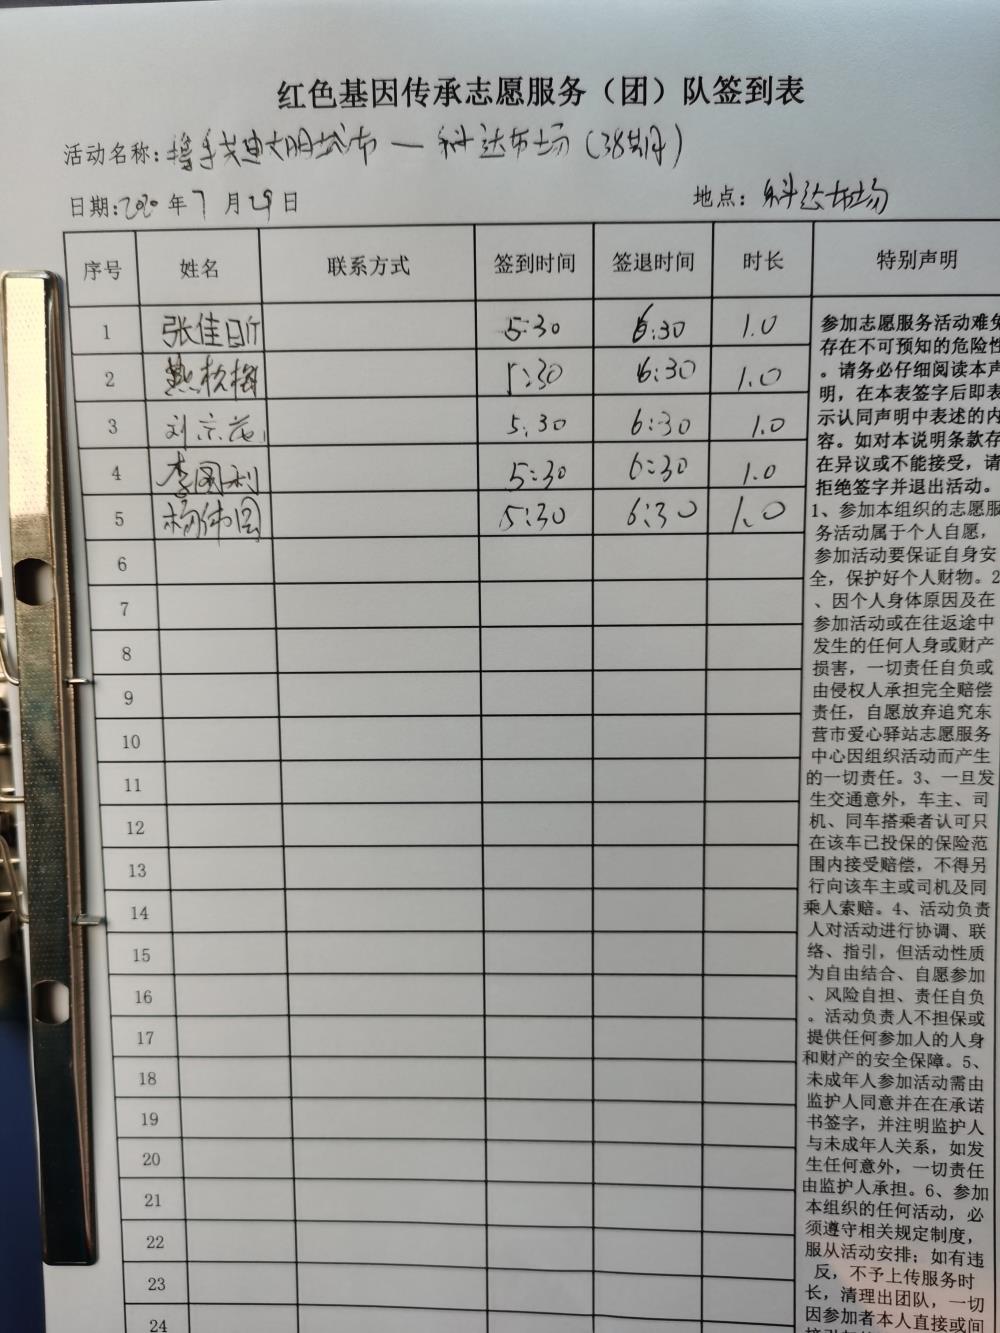 红色基因传承志愿服务（团）队签到表
活动名称：携手共建文明城市 — 科达市场（38期）
日期：2020年7月29日 地点：科达市场
序号 姓名 联系方式 签到时间 签退时间 时长 特别声明
1 张佳昕 5:30 6:30 1.0
2 5:30 6:30 1.0
3 刘京花 5:30 6:30 1.0
4 李国利 5:30 6:30 1.0
5 杨伟国 5:30 6:30 1.0
6
7
8
9
10
11
12
13
14
15
16
17
18
19
20
21
22
23
24
参加志愿服务活动难免
存在不可预知的危险性
。请务必仔细阅读本声
明，在本表签字后即表
示认同声明中表述的内
容。如对本说明条款存
在异议或不能接受，请
拒绝签字并退出活动。
1、参加本组织的志愿服
务活动属于个人自愿，
参加活动要保证自身安
全，保护好个人财物。2
、因个人身体原因及在
参加活动或在往返途中
发生的任何人身或财产
损害，一切责任自负或
由侵权人承担完全赔偿
责任，自愿放弃追究东
营市爱心驿站志愿服务
中心因组织活动而产生
的一切责任。3、一旦发
生交通意外，车主、司
机、同车搭乘者认可只
在该车已投保的保险范
围内接受赔偿，不得另
行向该车主或司机及同
乘人索赔。4、活动负责
人对活动进行协调、联
络、指引，但活动性质
为自由结合、自愿参加
、风险自担、责任自负
。活动负责人不担保或
提供任何参加人的人身
和财产的安全保障。5、
未成年人参加活动需由
监护人同意并在在承诺
书签字，并注明监护人
与未成年人关系，如发
生任何意外，一切责任
由监护人承担。6、参加
本组织的任何活动，必
须遵守相关规定制度，
服从活动安排；如有违
反，不予上传服务时
长，清理出团队，一切
因参加者本人直接或间